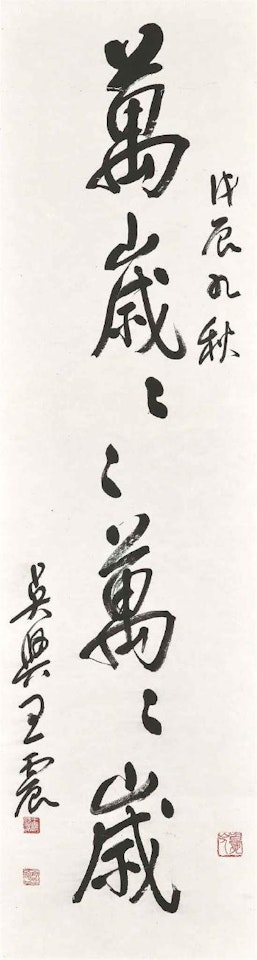 戊辰九秋
萬歲〻〻萬〻歲
吳興王震